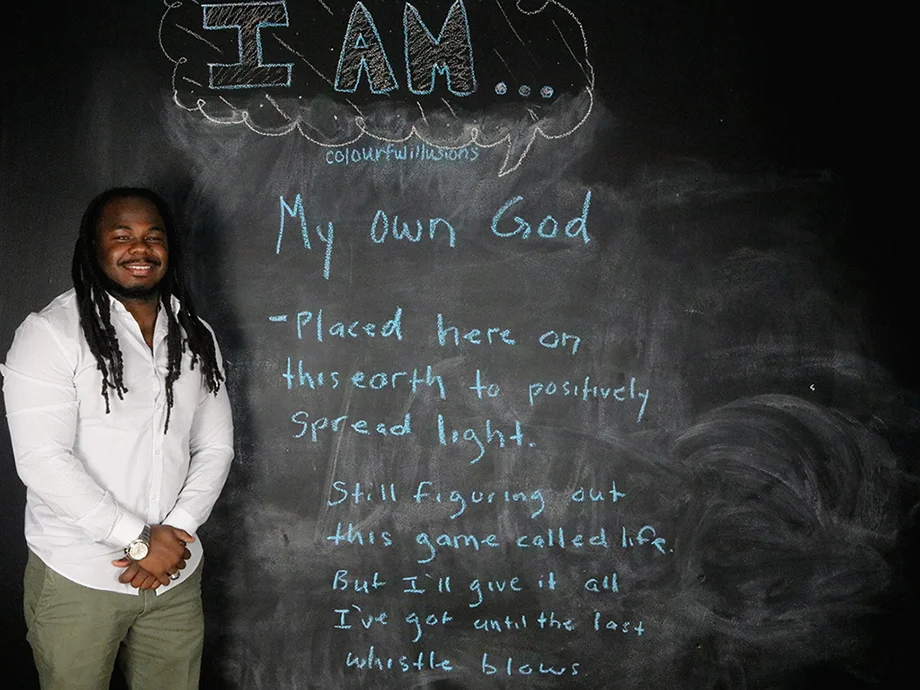 I AM...
colourfulillusions
My own God
-Placed here on
this earth to positively
Spread light.
Still figuring out
this game called life.
But I'll give it all
I've got until the last
whistle blows.